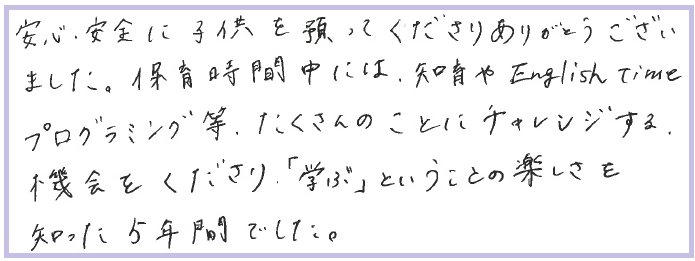 安心、安全に子供を預ってくださりありがとうござい
ました。保育時間中には、知育やEnglish time
プログラミング等、たくさんのことにチャレンジする、
機会をくださり、「学ぶ」ということの楽しさを
知った5年間でした。